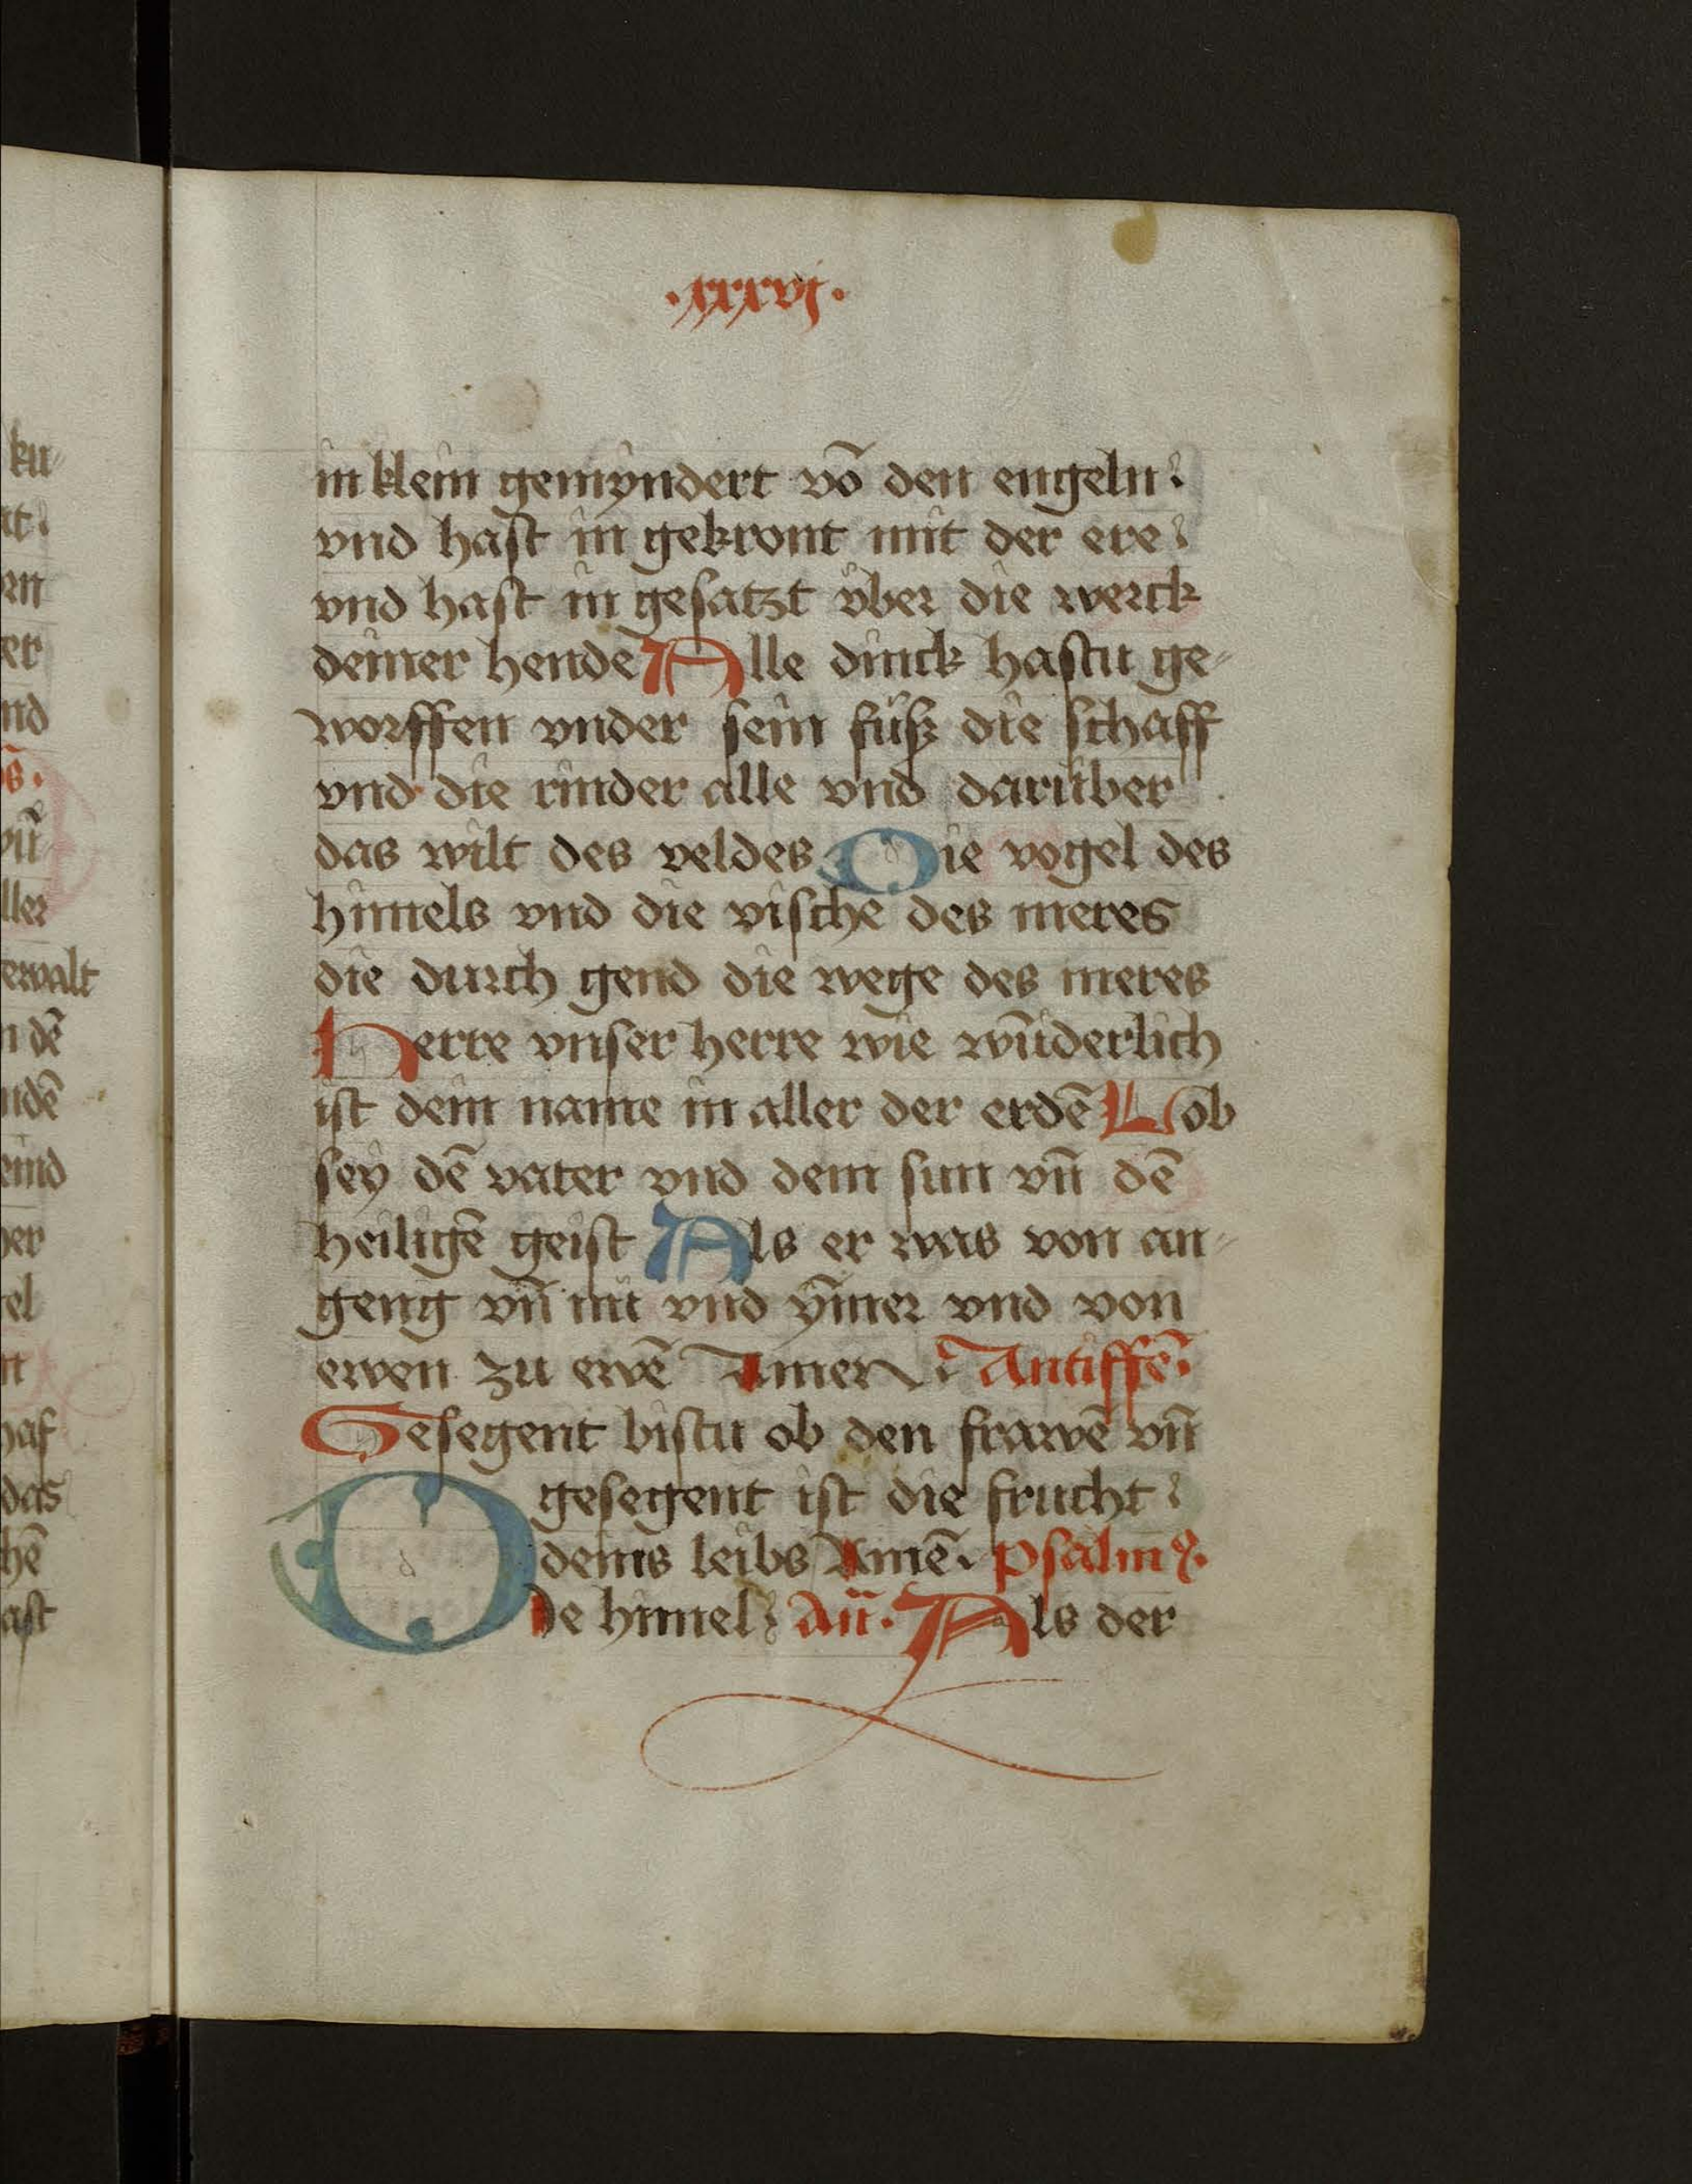 .xxxvj.
in klein gemyndert vō den engeln
vnd hast in gekront mit der ere
vnd hast in gesatzt vͦber die werck
deiner hende Alle dinck hastu ge-
worffen vnder sein fuͤß die schaff
vnd die rinder alle vnd daruͤber
das wilt des veldes Die vogel des
himels vnd die vische des meres
die durch gend die wege des meres
Herre vnser herre wie wūderlich
ist dein name in aller der erdē Lob
sey dē vater vnd dem sun vn̄ dē
heiligē geist Als er was von an-
geng vn̄ nu vnd ȳmer vnd von
ewen zu ewē Amen Antiffē.
Gesegent bistu ob den frawē vn̄
gesegent ist die frucht
deins leibs Amē. psalmꝰ.
Die himel An̄. Als der
ku-
at.
en
er
nd
vn̄
ller
ewalt
n dē
ndē
eind
er
el
nt
haf
das
hē
ast